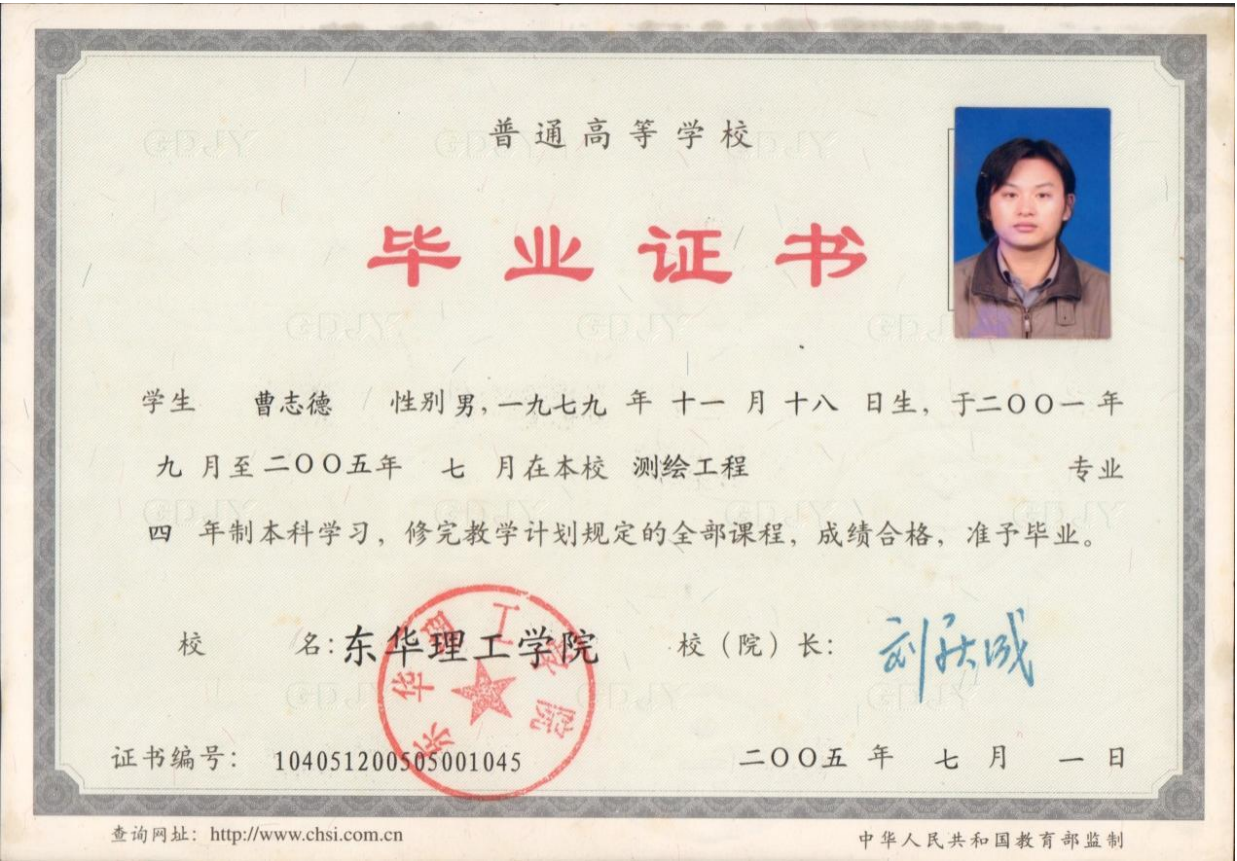 普通高等学校
毕业证书
学生 曹志德 性别 男，一九七九 年 十一 月 十八 日生，于二〇〇一 年
九 月至 二〇〇五年 七 月在本校 测绘工程 专业
四 年制本科学习，修完教学计划规定的全部课程，成绩合格，准予毕业。
校 名：东华理工学院 校（院）长：
东华理工学院
证书编号： 104051200505001045 二〇〇五 年 七 月 一 日
查询网址：http://www.chsi.com.cn 中华人民共和国教育部监制